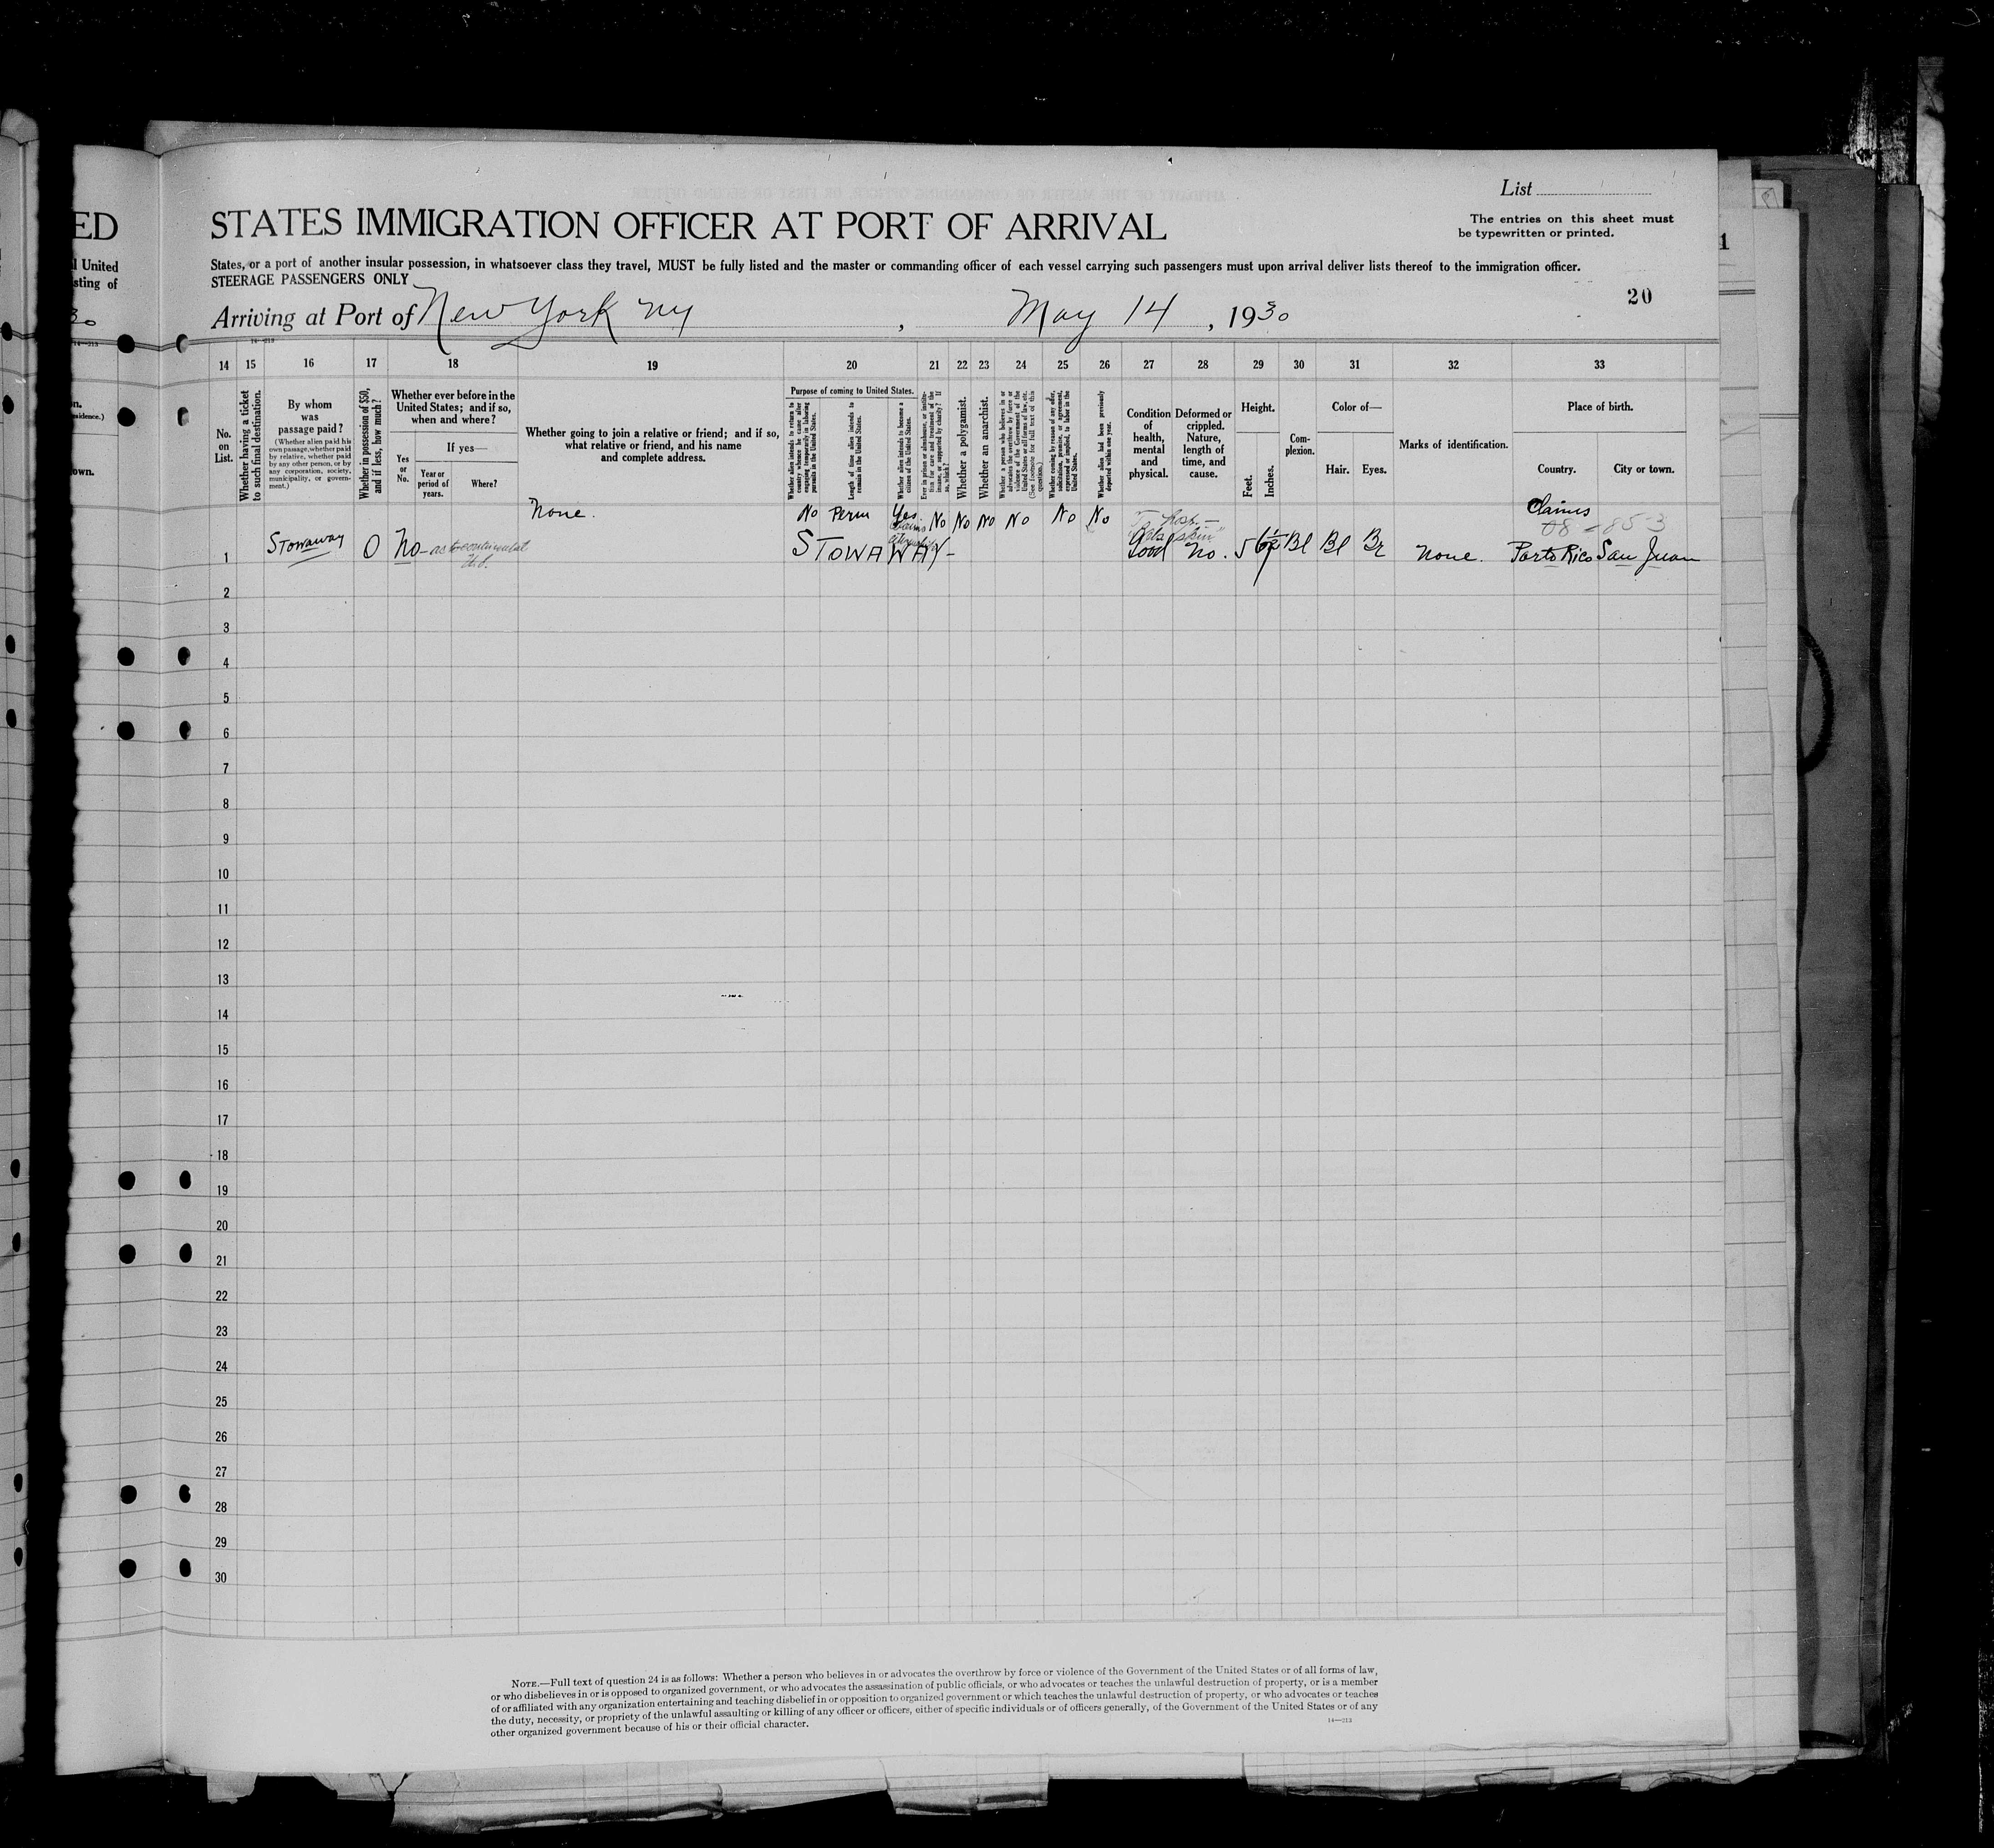 List
ED
STATES IMMIGRATION OFFICER AT PORT OF ARRIVAL
The entries on this sheet must
be typewritten or printed.
l United
sting of
States, or a port of another insular possession, in whatsoever class they travel, MUST be fully listed and the master or commanding officer of each vessel carrying such passengers must upon arrival deliver lists thereof to the immigration officer.
STEERAGE PASSENGERS ONLY
20
1
Arriving at Port of New York NY, May 14, 1930
14—213
14 15 16 17 18 19 20 21 22 23 24 25 26 27 28 29 30 31 32 33
No. on List.
Whether having a ticket to such final destination.
By whom was passage paid?
(Whether alien paid his own passage, whether paid by relative, whether paid by any other person, or by any corporation, society, municipality, or government.)
Whether in possession of $50, and if less, how much?
Whether ever before in the United States; and if so, when and where?
If yes—
Yes or No.
Year or period of years.
Where?
Whether going to join a relative or friend; and if so, what relative or friend, and his name and complete address.
Purpose of coming to United States.
Whether alien intends to return to country whence he came after engaging temporarily in laboring pursuits in the United States.
Length of time alien intends to remain in the United States.
Whether alien intends to become a citizen of the United States.
Ever in prison or almshouse, or institution for care and treatment of the insane, or supported by charity? If so, which?
Whether a polygamist.
Whether an anarchist.
Whether a person who believes in or advocates the overthrow by force or violence of the Government of the United States or all forms of law, etc. (See footnote for full text of this question.)
Whether coming by reason of any offer, solicitation, promise, or agreement, expressed or implied, to labor in the United States.
Whether alien had been previously deported within one year.
Condition of health, mental and physical.
Deformed or crippled. Nature, length of time, and cause.
Height.
Feet. Inches.
Complexion.
Color of—
Hair. Eyes.
Marks of identification.
Place of birth.
Country. City or town.
None. No Perm Yes No No No No No No Hosp.— Claims
claims citizenship 08-853
1 Stowaway 0 No - as to continental U.S. STOWAWAY- Good No. 5 6½ Bl Bl Br None. Porto Rico San Juan
2
3
4
5
6
7
8
9
10
11
12
13
14
15
16
17
18
19
20
21
22
23
24
25
26
27
28
29
30
NOTE.—Full text of question 24 is as follows: Whether a person who believes in or advocates the overthrow by force or violence of the Government of the United States or of all forms of law,
or who disbelieves in or is opposed to organized government, or who advocates the assassination of public officials, or who advocates or teaches the unlawful destruction of property, or is a member
of or affiliated with any organization entertaining and teaching disbelief in or opposition to organized government or which teaches the unlawful destruction of property, or who advocates or teaches
the duty, necessity, or propriety of the unlawful assaulting or killing of any officer or officers, either of specific individuals or of officers generally, of the Government of the United States or of any
other organized government because of his or their official character.
14—213